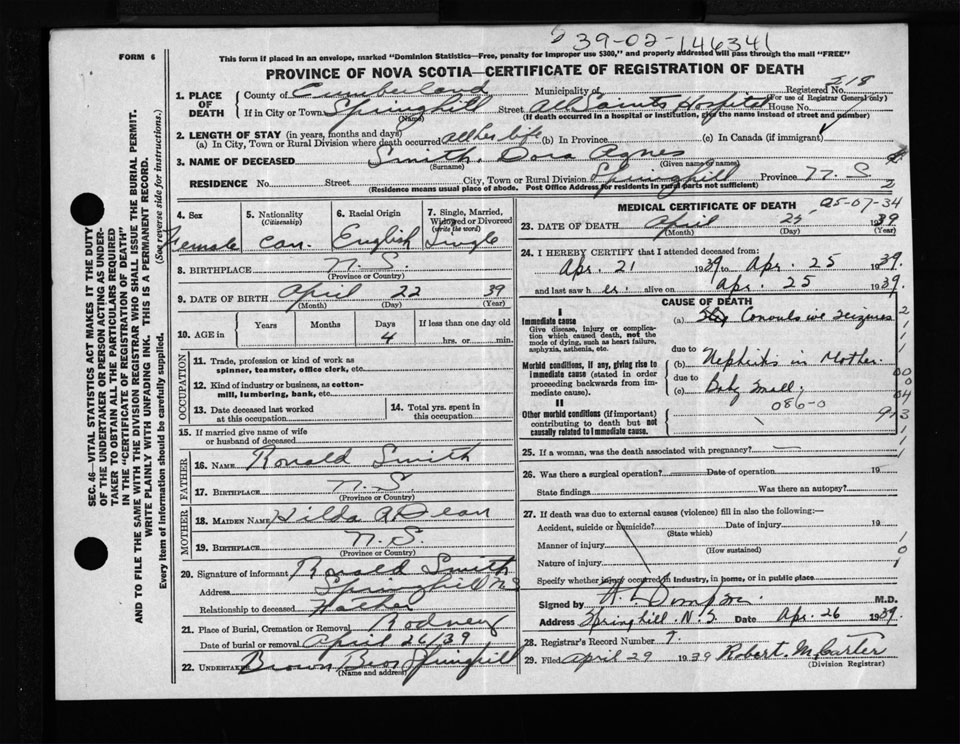 39-02-146341
FORM 6
This form if placed in an envelope, marked "Dominion Statistics—Free, penalty for improper use $300," and properly addressed will pass through the mail "FREE"
PROVINCE OF NOVA SCOTIA—CERTIFICATE OF REGISTRATION OF DEATH
218
1. PLACE OF DEATH
County of Cumberland Municipality of Registered No.
(For use of Registrar General only)
If in City or Town Springhill Street All Saints Hospital House No.
(Name) (If death occurred in a hospital or institution, give the name instead of street and number)
2. LENGTH OF STAY (in years, months and days)
(a) In City, Town or Rural Division where death occurred all her life (b) In Province (c) In Canada (if immigrant)
3. NAME OF DECEASED Smith, Dora Agnes
(Surname) (Given name or names)
RESIDENCE No. Street City, Town or Rural Division Springhill Province N. S.
(Residence means usual place of abode. Post Office Address for residents in rural parts not sufficient)
4. Sex
Female
5. Nationality
(Citizenship)
Can.
6. Racial Origin
English
7. Single, Married, Widowed or Divorced
(write the word)
Single
8. BIRTHPLACE N. S.
(Province or Country)
9. DATE OF BIRTH April 22 39
(Month) (Day) (Year)
10. AGE in
Years Months Days If less than one day old
4 hrs. or min.
OCCUPATION
11. Trade, profession or kind of work as
spinner, teamster, office clerk, etc.
12. Kind of industry or business, as cotton-
mill, lumbering, bank, etc.
13. Date deceased last worked
at this occupation
14. Total yrs. spent in
this occupation
15. If married give name of wife
or husband of deceased
FATHER
16. NAME Ronald Smith
17. BIRTHPLACE N. S.
(Province or Country)
MOTHER
18. MAIDEN NAME Hilda A. Dean
19. BIRTHPLACE N. S.
(Province or Country)
20. Signature of informant Ronald Smith
Address Springhill N S
Relationship to deceased Father
21. Place of Burial, Cremation or Removal Rodney
Date of burial or removal April 26/39
22. UNDERTAKER Brown Bros Springhill
(Name and address)
MEDICAL CERTIFICATE OF DEATH 25-07-34
23. DATE OF DEATH April 25 1939
(Month) (Day) (Year)
24. I HEREBY CERTIFY that I attended deceased from:
Apr. 21 1939 to Apr. 25 1939.
and last saw her alive on Apr. 25 1939.
CAUSE OF DEATH
I
Immediate cause
Give disease, injury or complica-
tion which caused death, not the
mode of dying, such as heart failure,
asphyxia, asthenia, etc.
(a) Convulsive Seizures
due to
Morbid conditions, if any, giving rise to
immediate cause (stated in order
proceeding backwards from im-
mediate cause).
(b) Nephritis in Mother.
due to
(c) Baby small.
086-0
II
Other morbid conditions (if important)
contributing to death but not
causally related to immediate cause.
25. If a woman, was the death associated with pregnancy?
26. Was there a surgical operation? Date of operation 19
State findings Was there an autopsy?
27. If death was due to external causes (violence) fill in also the following:—
Accident, suicide or homicide? Date of injury 19
(State which)
Manner of injury
(How sustained)
Nature of injury
Specify whether injury occurred in industry, in home, or in public place
Signed by M.D.
Address Springhill. N. S. Date Apr. 26 1939.
28. Registrar's Record Number 7.
29. Filed April 29 1939 Robert. McCarter
(Division Registrar)
SEC. 46—VITAL STATISTICS ACT MAKES IT THE DUTY
OF THE UNDERTAKER OR PERSON ACTING AS UNDER-
TAKER TO OBTAIN ALL THE PARTICULARS REQUIRED
IN THE "CERTIFICATE OF REGISTRATION OF DEATH"
AND TO FILE THE SAME WITH THE DIVISION REGISTRAR WHO SHALL ISSUE THE BURIAL PERMIT.
WRITE PLAINLY WITH UNFADING INK. THIS IS A PERMANENT RECORD.
Every item of information should be carefully supplied. (See reverse side for instructions.)